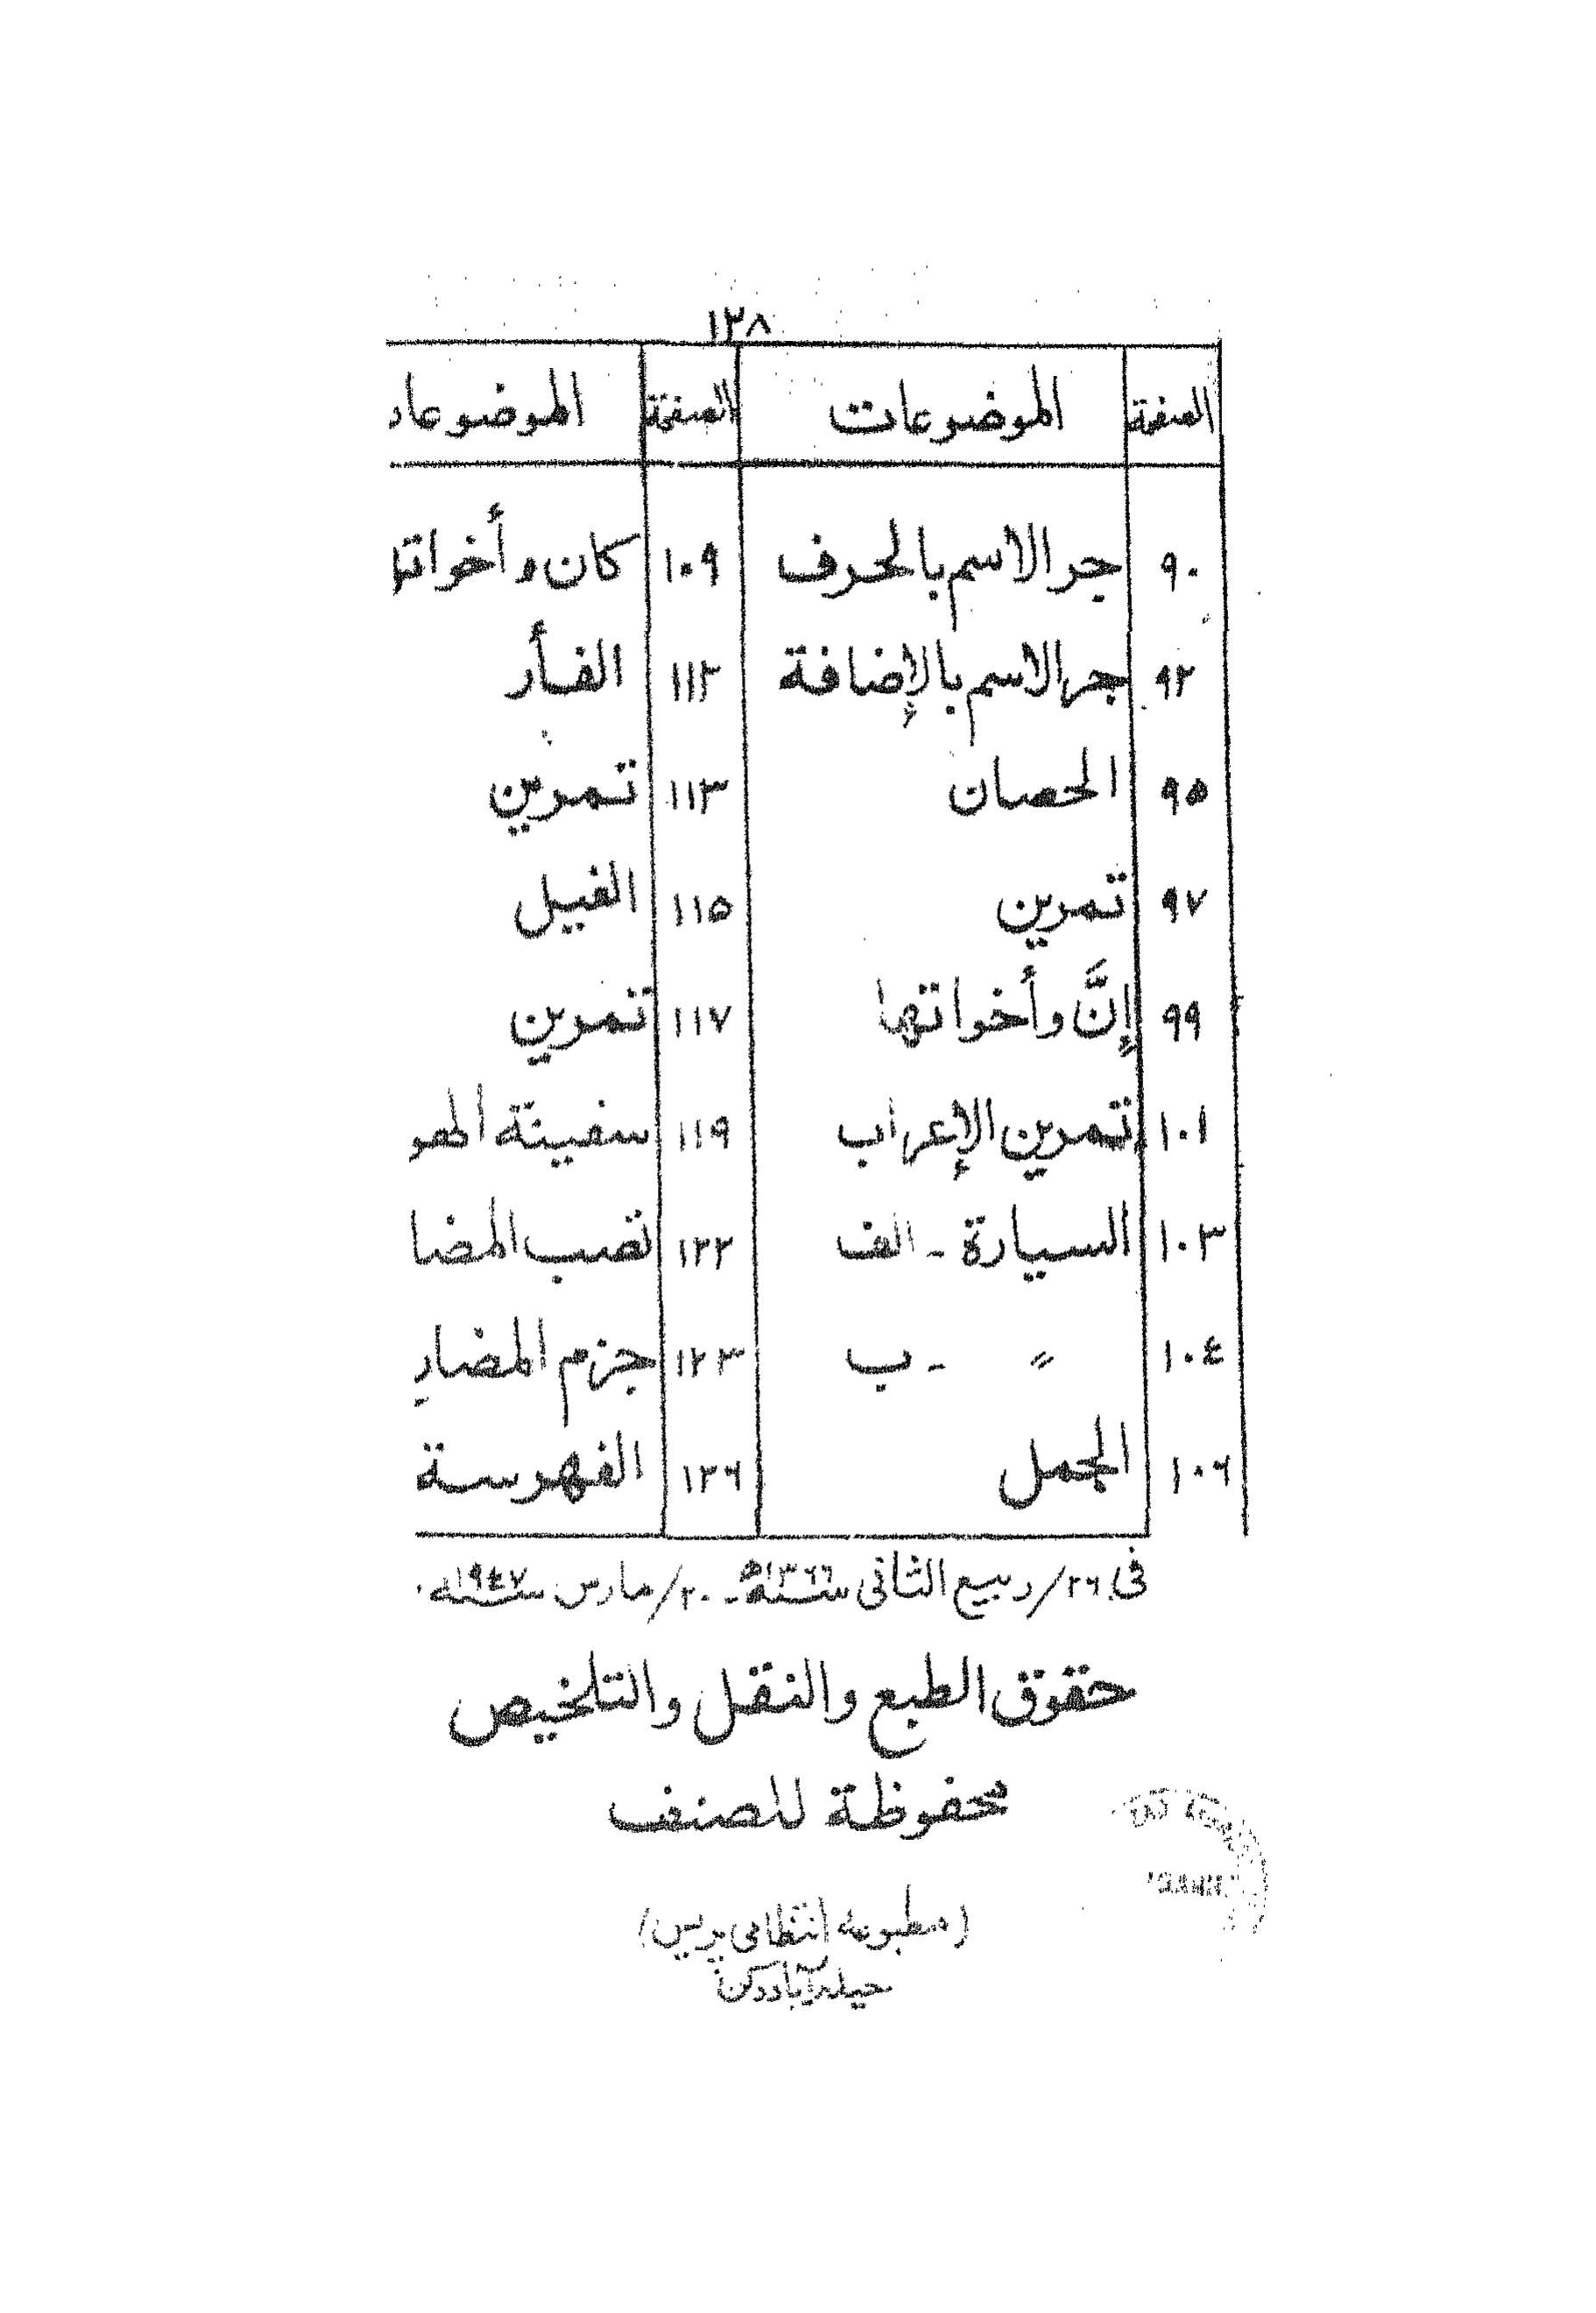 ١٢٨
الصفحة الموضوعات الصفحة الموضوعات
٩٠ جر الاسم بالحرف ١٠٩ كان وأخواتها
٩٢ جر الاسم بالإضافة ١١٢ الفأر
٩٥ الحصان ١١٣ تمرين
٩٧ تمرين ١١٥ الفيل
٩٩ إنَّ وأخواتها ١١٧ تمرين
١٠١ تمرين الإعراب ١١٩ سفينة
١٠٣ السيارة - الف ١٢٢ نصب المضا
١٠٤ " - ب ١٢٣ جزم المضار
١٠٦ الجمل ١٢٦ الفهرسة
فى ٢٦/ربيع الثانى سنة ١٣٦٦ﻫ - ٢٠/مارس سنة ١٩٤٧
حقوق الطبع والنقل والتلخيص
محفوظة للمصنف
(مطبوعه انتظامى پريس)
حيدرآباد دكن